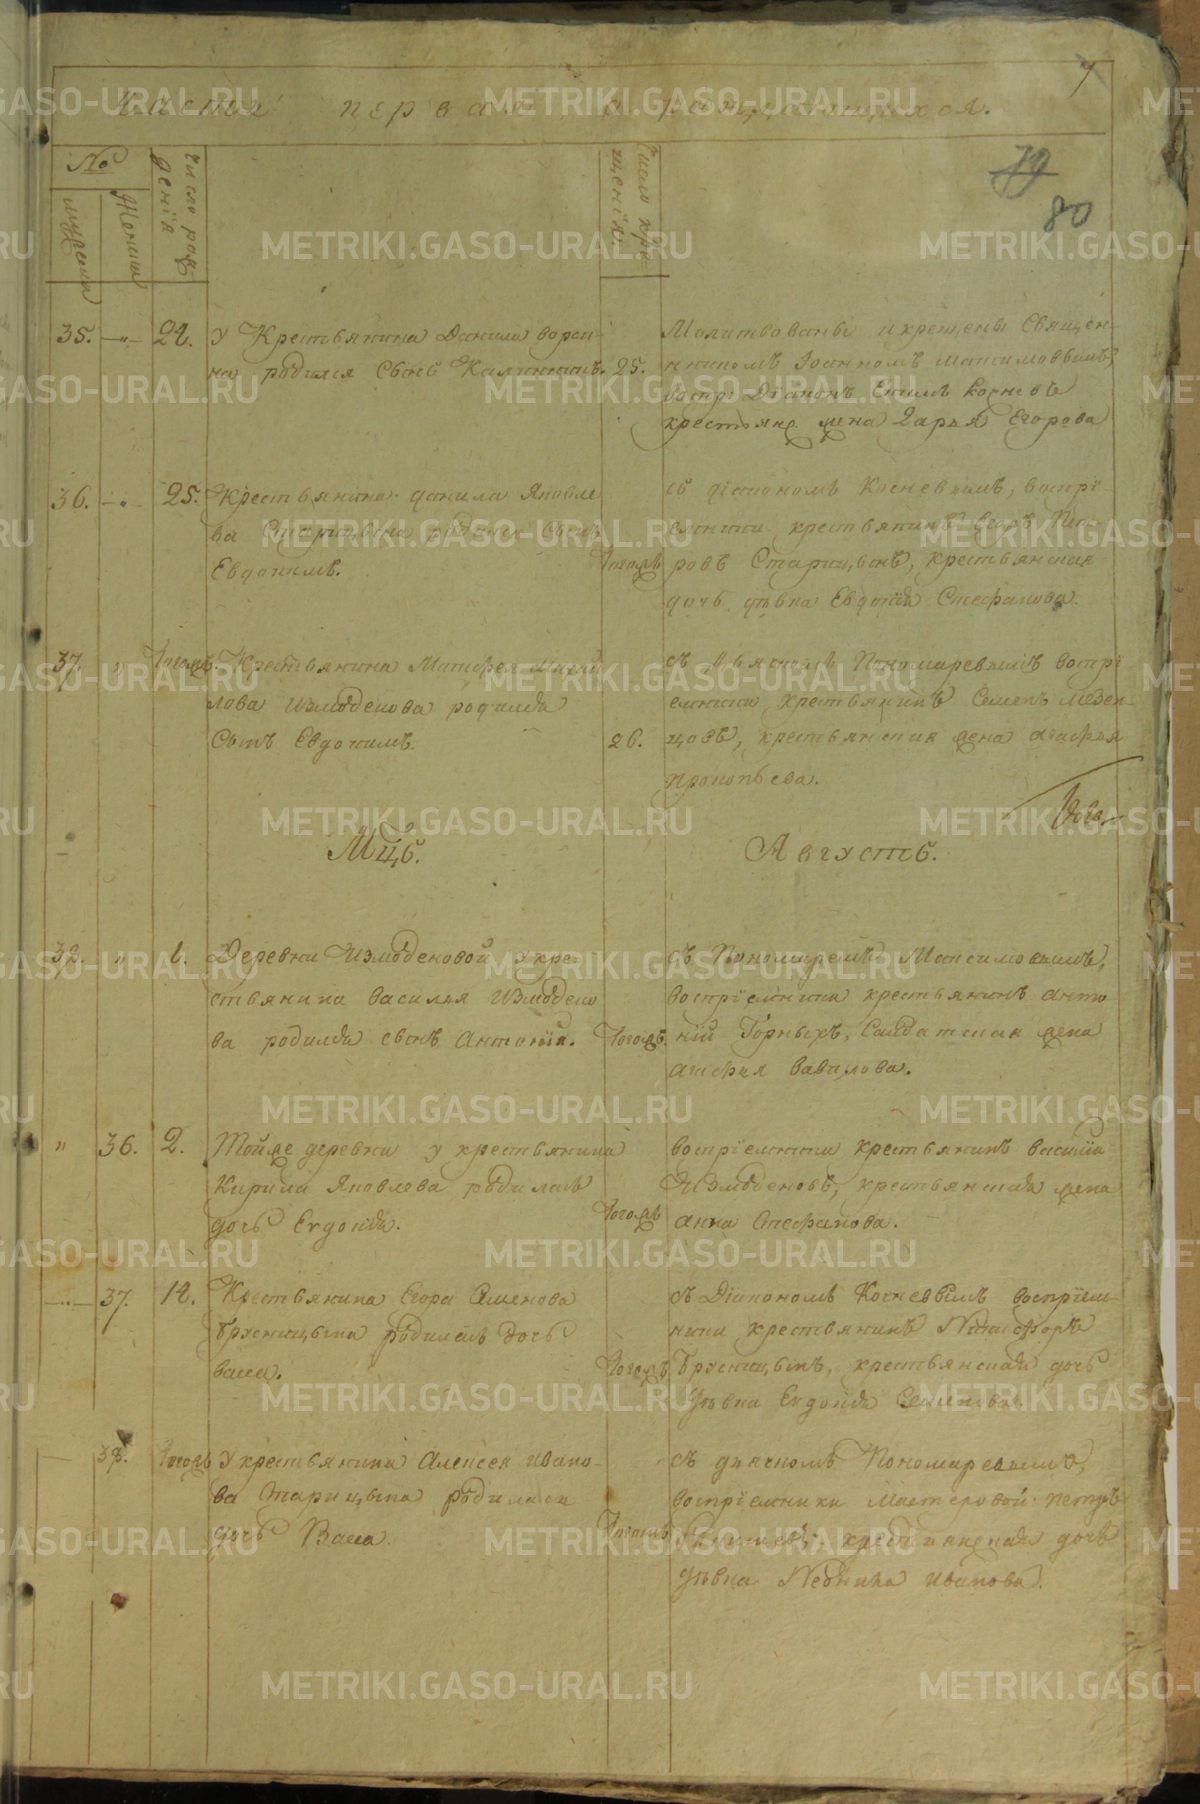 7
Часть первая о раждающихся.
79
80
№
мужеска
Женска
число рождения
Число крещения.
35. 24. У Крестьянина Данила ворони-
на родился Сынъ Каллиникъ. 25.
Молитвованы и крещены Священ-
никомъ Іоанномъ Максимовымъ,
воспр: Діаконъ Екимъ Косневъ
крестьянс. жена Дарья Егорова
36. 25. Крестьянина данила Яковле
ва Старицына родился Сынъ
Евдокимъ. Тогожъ
съ діакономъ Косневымъ, воспрі-
емники крестьянинъ Егоръ Пет-
ровъ Старицынъ, крестьянская
дочь дѣвка Евдокія Стефанова.
37. Тогожъ. Крестьянина Матфея Михай
лова Измоденова родился
Сынъ Евдокимъ. 26.
съ дьячкомъ Пономаревымъ воспрі
емники крестьянинъ Семенъ Мезен-
цовъ, крестьянская жена агафья
прокопьева.
Мцъ. Августъ.
38. 1. Деревни Измоденовой у кре-
стьянина василья Измодено
ва родился сынъ Антоній. Тогожъ.
съ Пономаремъ Максимовымъ,
воспріемники крестьянинъ анто
ній Горныхъ, Салдатская жена
агафья вавилова.
36. 2. Тойже деревни у крестьянина
Кирила Яковлева родилась
дочь Евдокія. Тогожъ
воспріемники крестьянинъ василій
Измоденовъ, крестьянская жена
анна Стефанова.
37. 14. Крестьянина Егора Семенова
Брусницына родилась дочь
васса. Тогожъ
съ Діакономъ Косневымъ воспріем-
ники крестьянинъ Никифоръ
Брусницынъ, крестьянская дочь
дѣвка Евдокія Семенова.
38. Тогожъ У крестьянина Алексея Ивано-
ва Старицына родилася
дочь Васса. Тогожъ
съ дьячкомъ Пономаревымъ,
воспріемники мастеровой петръ
крестьянская дочь
дѣвка Ѳедосья иванова.
METRIKI.GASO-URAL.RU